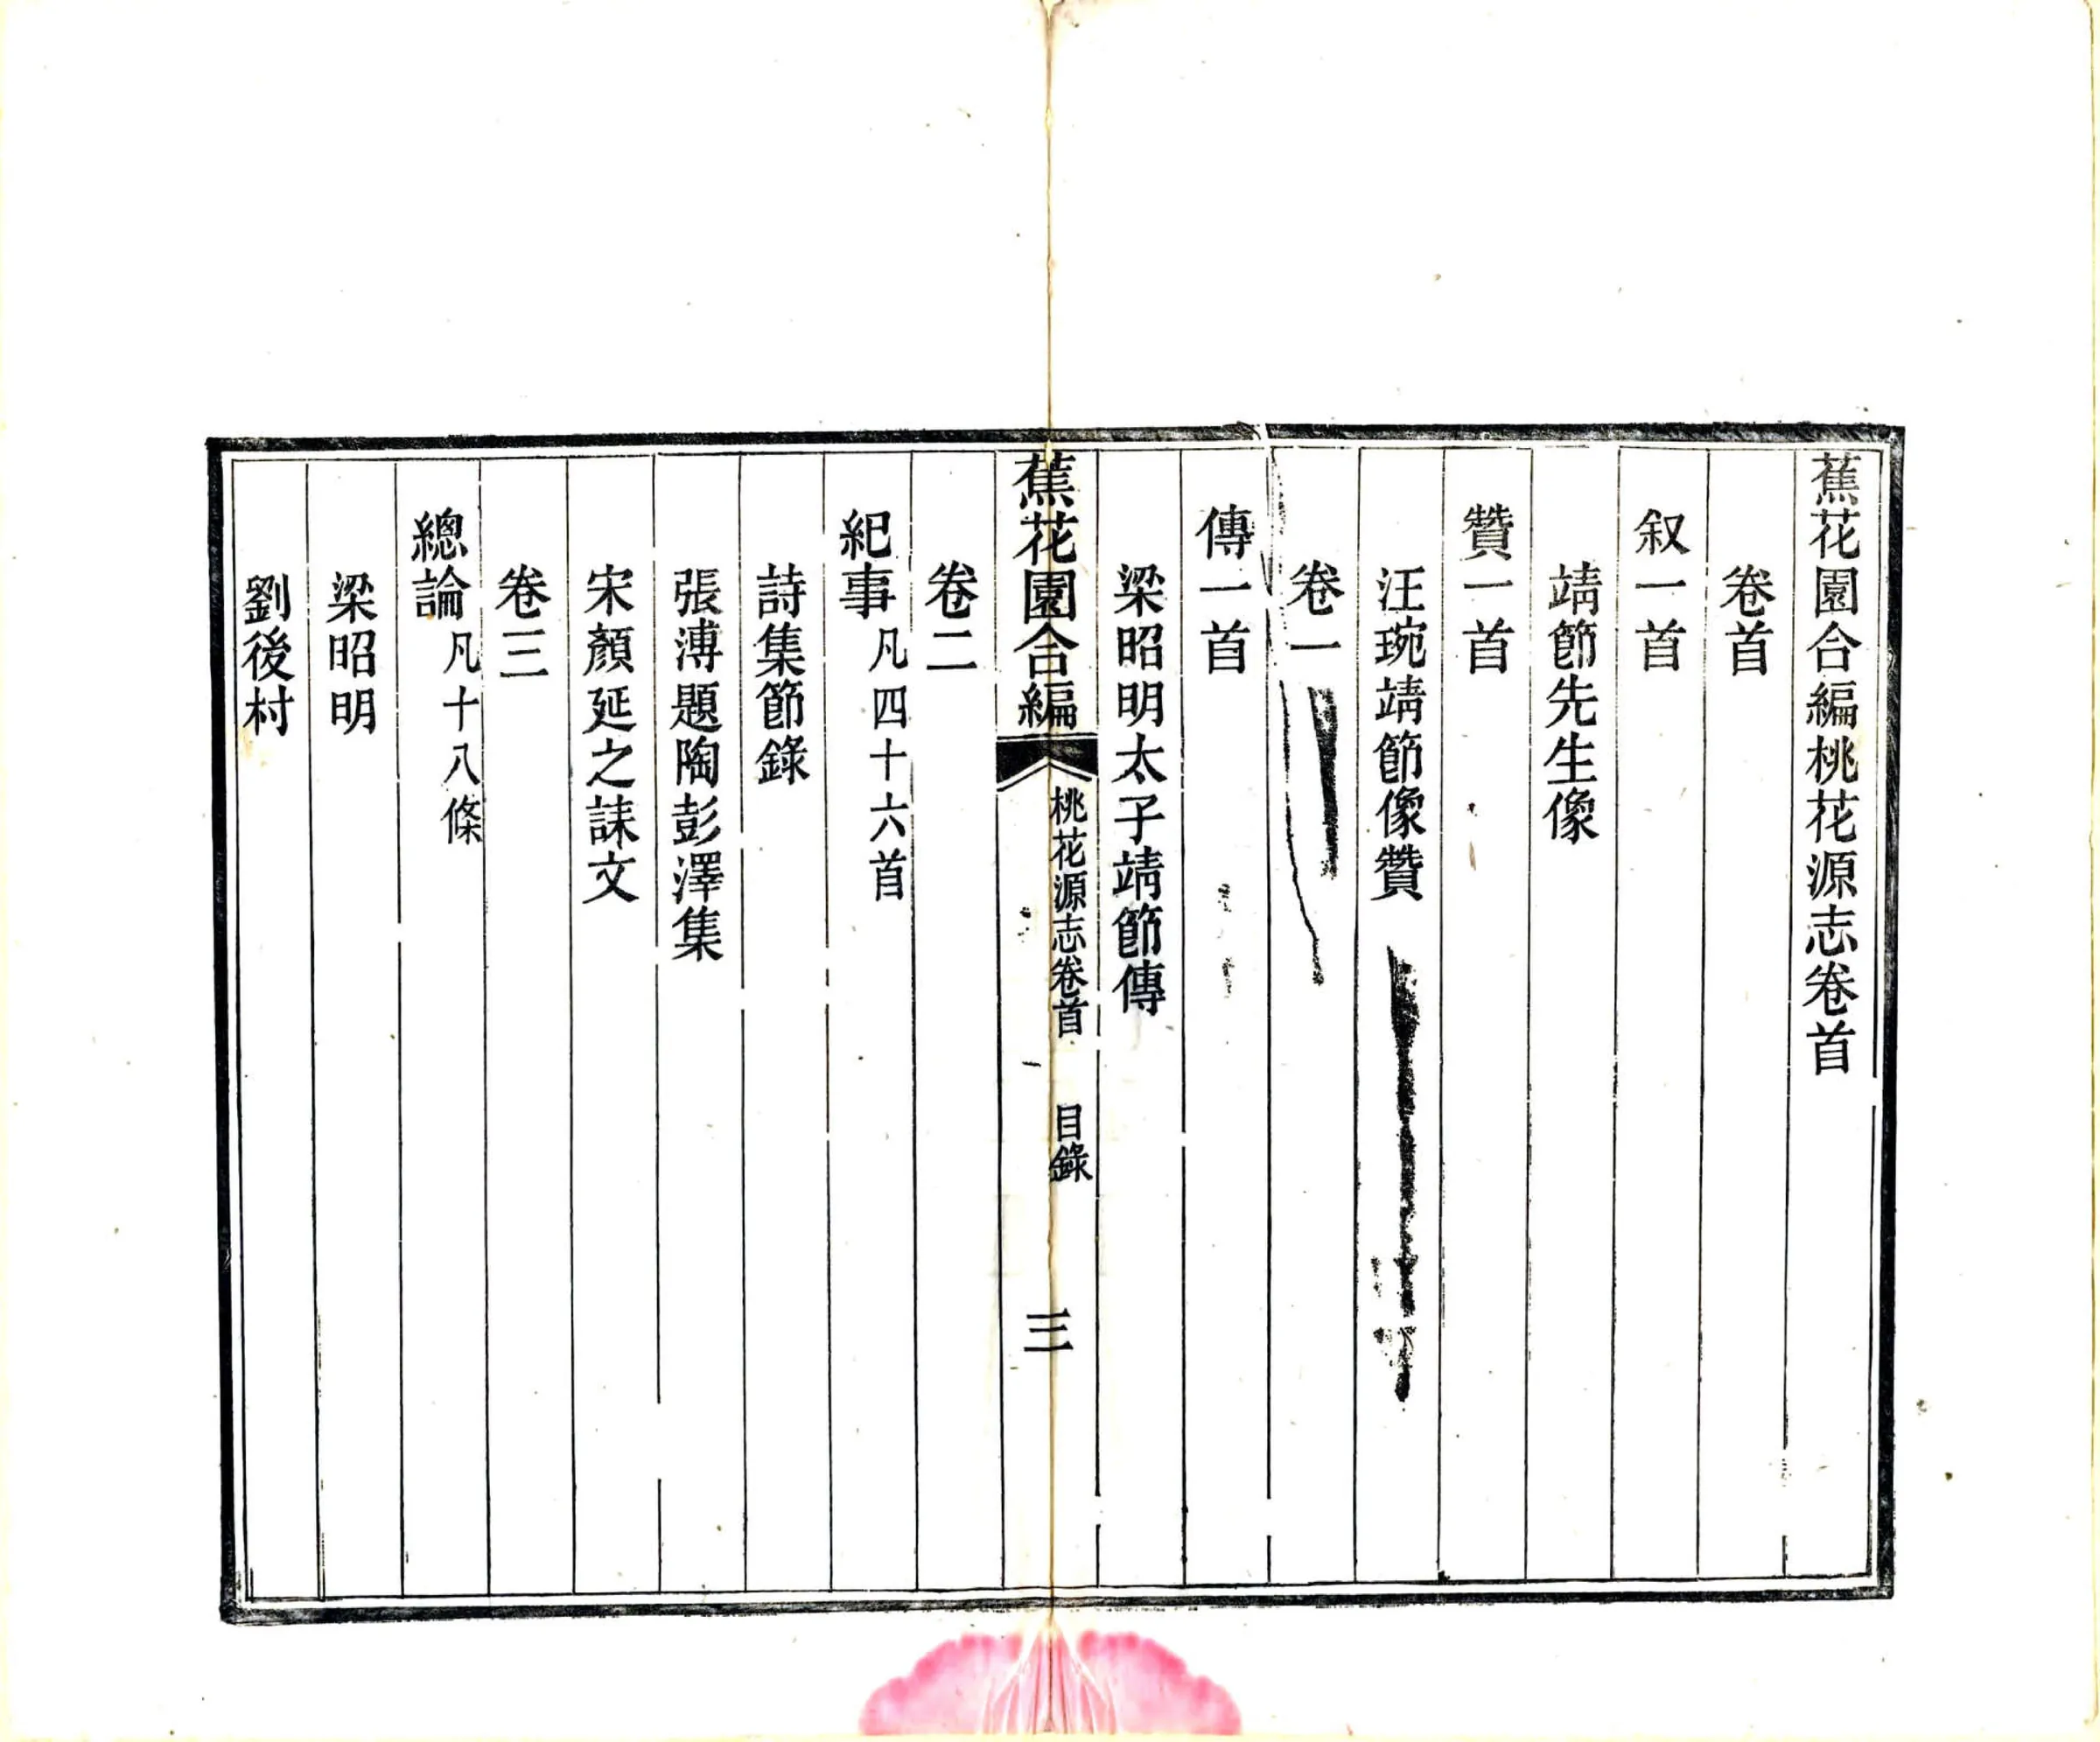 蕉花園合編桃花源志卷首
卷首
叙一首
靖節先生像
贊一首
汪琬靖節像贊
卷一
傳一首
梁昭明太子靖節傳
蕉花園合編
桃花源志卷首
目錄
三
卷二
紀事凡四十六首
詩集節錄
張溥題陶彭澤集
宋顏延之誄文
卷三
總論凡十八條
梁昭明
劉後村